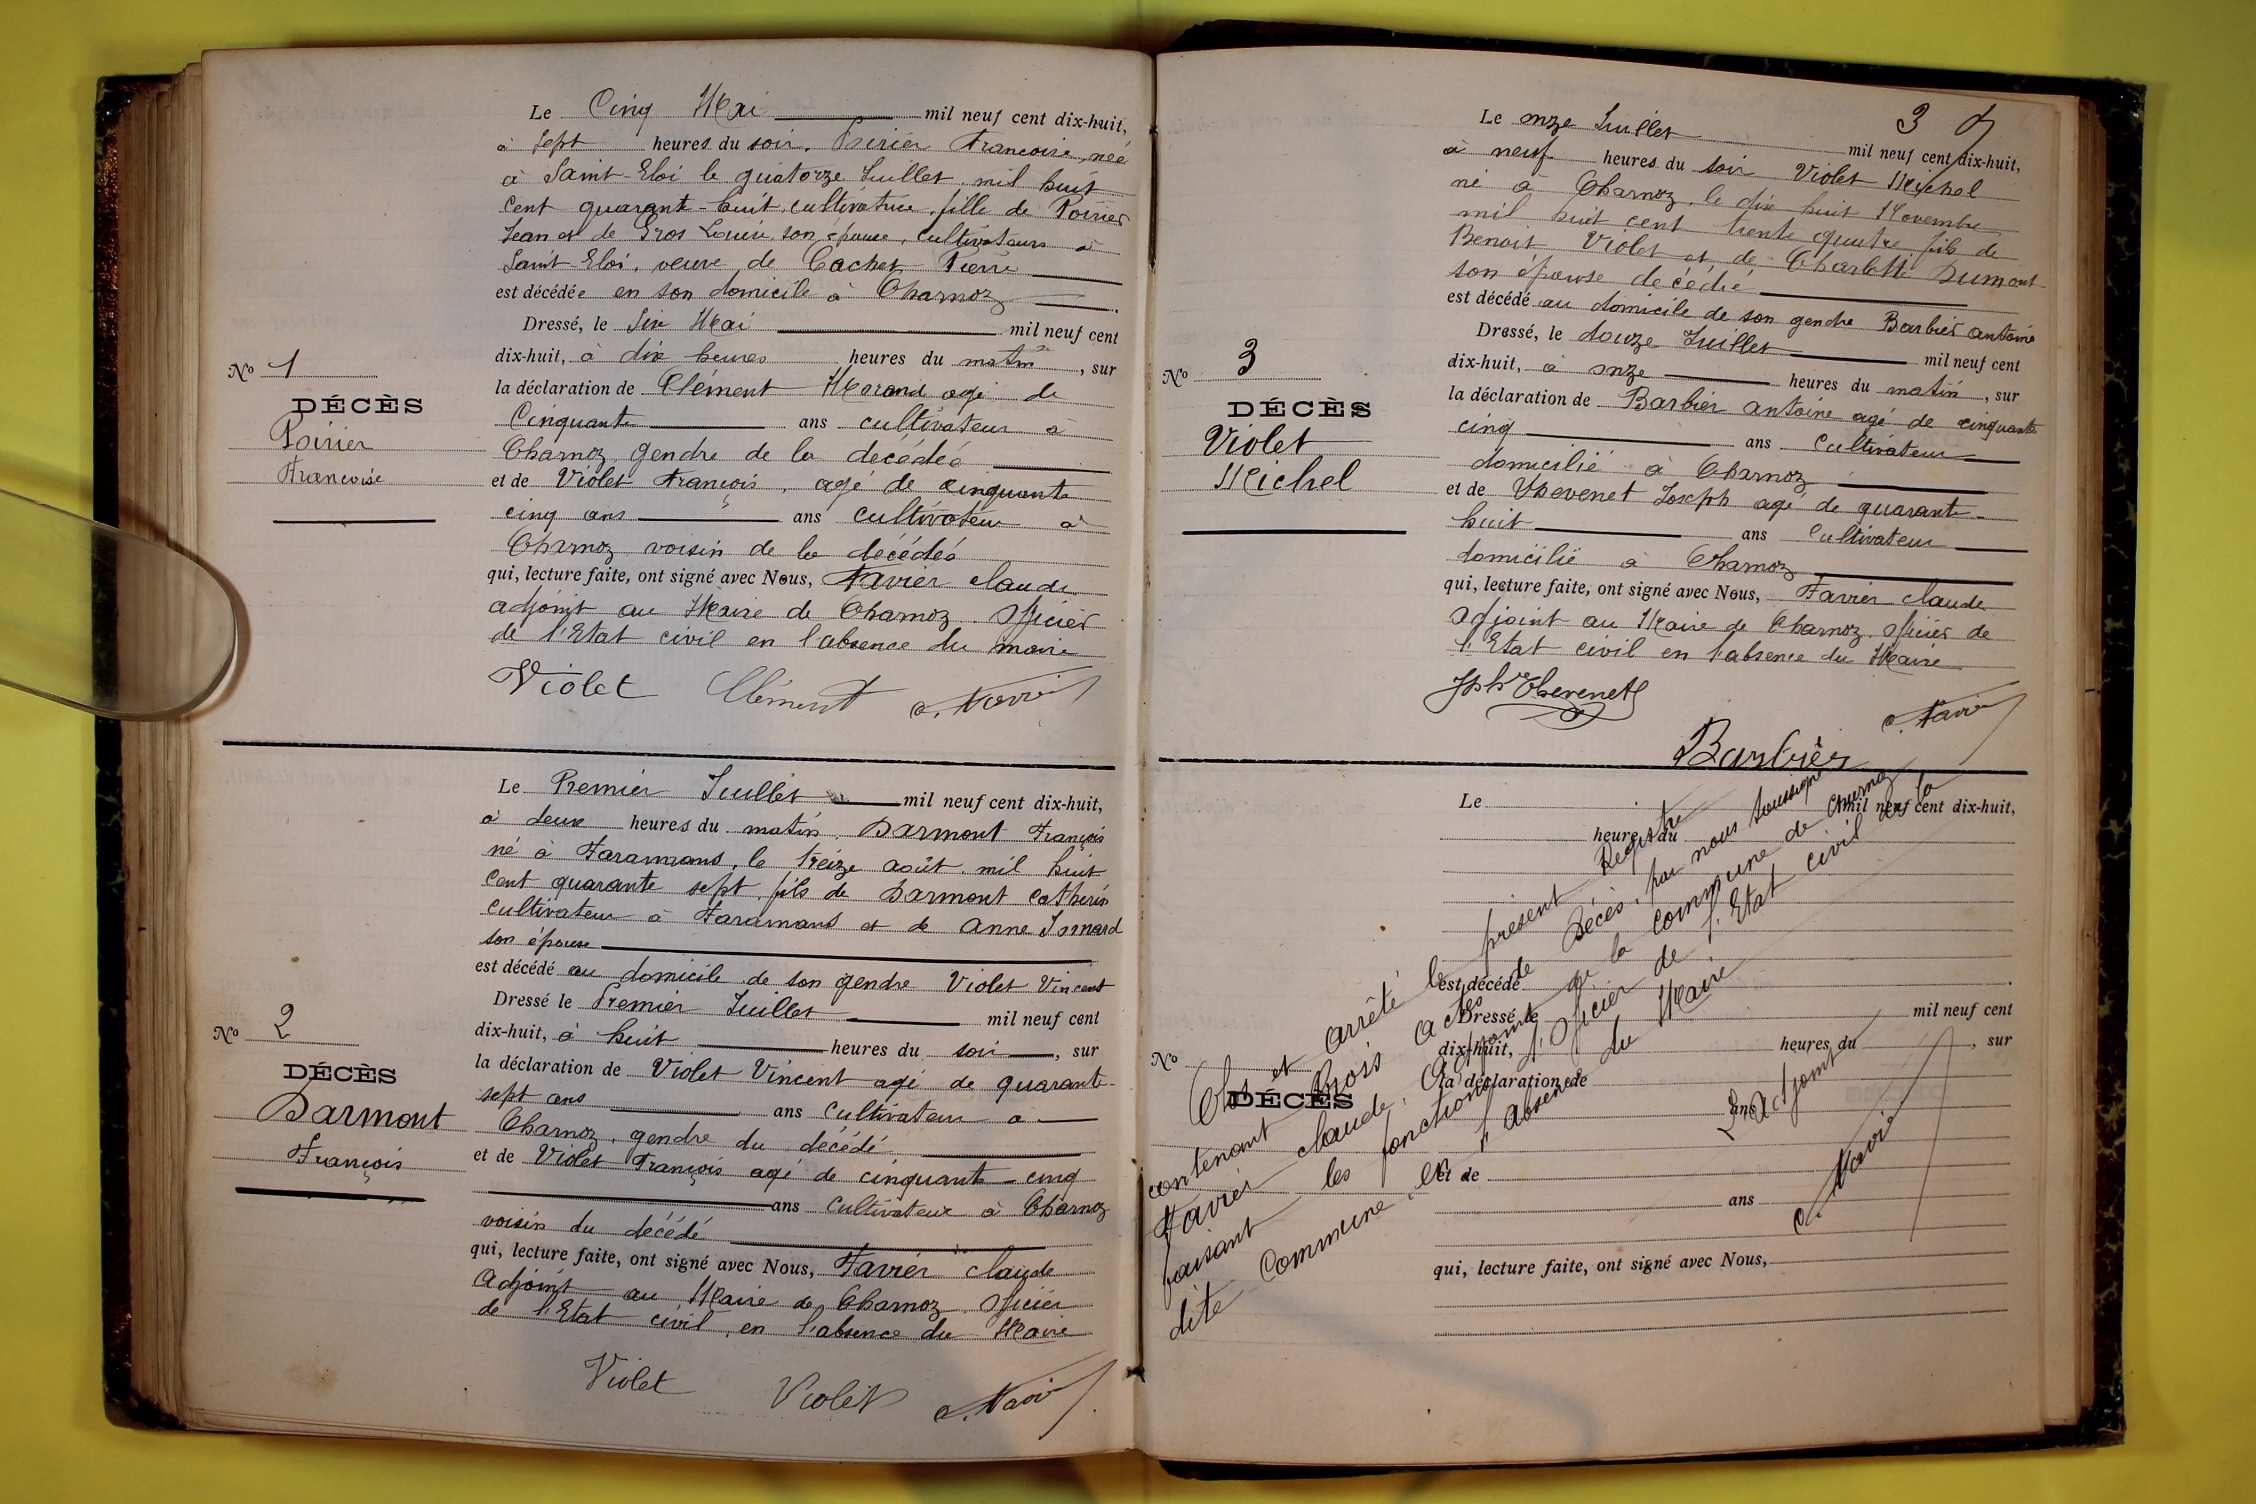 Le Cinq Mai mil neuf cent dix-huit,
à sept heures du soir, Poirier Francoise, née
à Saint-Eloi le quatorze Juillet mil huit
cent quarant-huit cultivatrice, fille de Poirier
Jean et de Gros Louise son épouse, cultivateurs à
Saint-Eloi, veuve de Cachet Pierre
est décédée en son domicile à Charnoz
Dressé, le Six Mai mil neuf cent
dix-huit, à dix heures heures du matin, sur
la déclaration de Clément Morand agé de
Cinquante ans cultivateur à
Charnoz gendre de la décédée
et de Violet François, agé de cinquante
cinq ans ans cultivateur à
Charnoz voisin de la décédée
qui, lecture faite, ont signé avec Nous, Favier claude
adjoint au Maire de Charnoz Officier
de l'Etat civil en l'absence du maire
Violet Clément C. Favier
No 1
DÉCÈS
Poirier
Francoise
Le Premier Juillet mil neuf cent dix-huit,
à deux heures du matin. Darmont François
né à Faramans, le treize août mil huit
cent quarante sept, fils de Darmont Catherin
cultivateur à Faramans et de Anne
son épouse
est décédé au domicile de son gendre Violet Vincent
Dressé le Premier Juillet mil neuf cent
dix-huit, à huit heures du soir, sur
la déclaration de Violet Vincent agé de quarante-
sept ans ans cultivateur à
Charnoz, gendre du décédé
et de Violet François agé de cinquante-cinq
ans cultivateur à Charnoz
voisin du décédé
qui, lecture faite, ont signé avec Nous, Favier claude
Adjoint au Maire de Charnoz Officier
de l'Etat civil, en l'absence du Maire
Violet Violet C. Favier
No 2
DÉCÈS
Darmont
François
3
Le onze Juillet mil neuf cent dix-huit,
à neuf heures du soir Violet Michel
né à Charnoz, le dix huit Novembre
mil huit cent trente quatre fils de
Benoit Violet et de Charlotte Dumont
son épouse décédé
est décédé au domicile de son gendre Barbier antoine
Dressé, le douze Juillet mil neuf cent
dix-huit, à onze heures du matin, sur
la déclaration de Barbier antoine agé de cinquante
cinq ans cultivateur
domicilié à Charnoz
et de Thevenet Joseph agé de quarant-
huit ans Cultivateur
domicilié à Charnoz
qui, lecture faite, ont signé avec Nous, Favier claude
adjoint au Maire de Charnoz. Officier de
l'Etat civil en l'absence du Maire
Jph Thevenet C. Favier
Barbier
No 3
DÉCÈS
Violet
Michel
Le mil neuf cent dix-huit,
heures du
est décédé
Dressé le mil neuf cent
dix-huit, heures du , sur
la déclaration de
ans
et de
ans
qui, lecture faite, ont signé avec Nous,
No
DÉCÈS
Clos et arrêté le présent Registre
contenant trois actes de Décès, par nous soussigné
Favier claude, Adjoint de la commune de Charnoz
faisant les fonctions d'Officier de l'Etat civil de la
dite Commune, en l'absence du Maire
L'adjoint
C. Favier